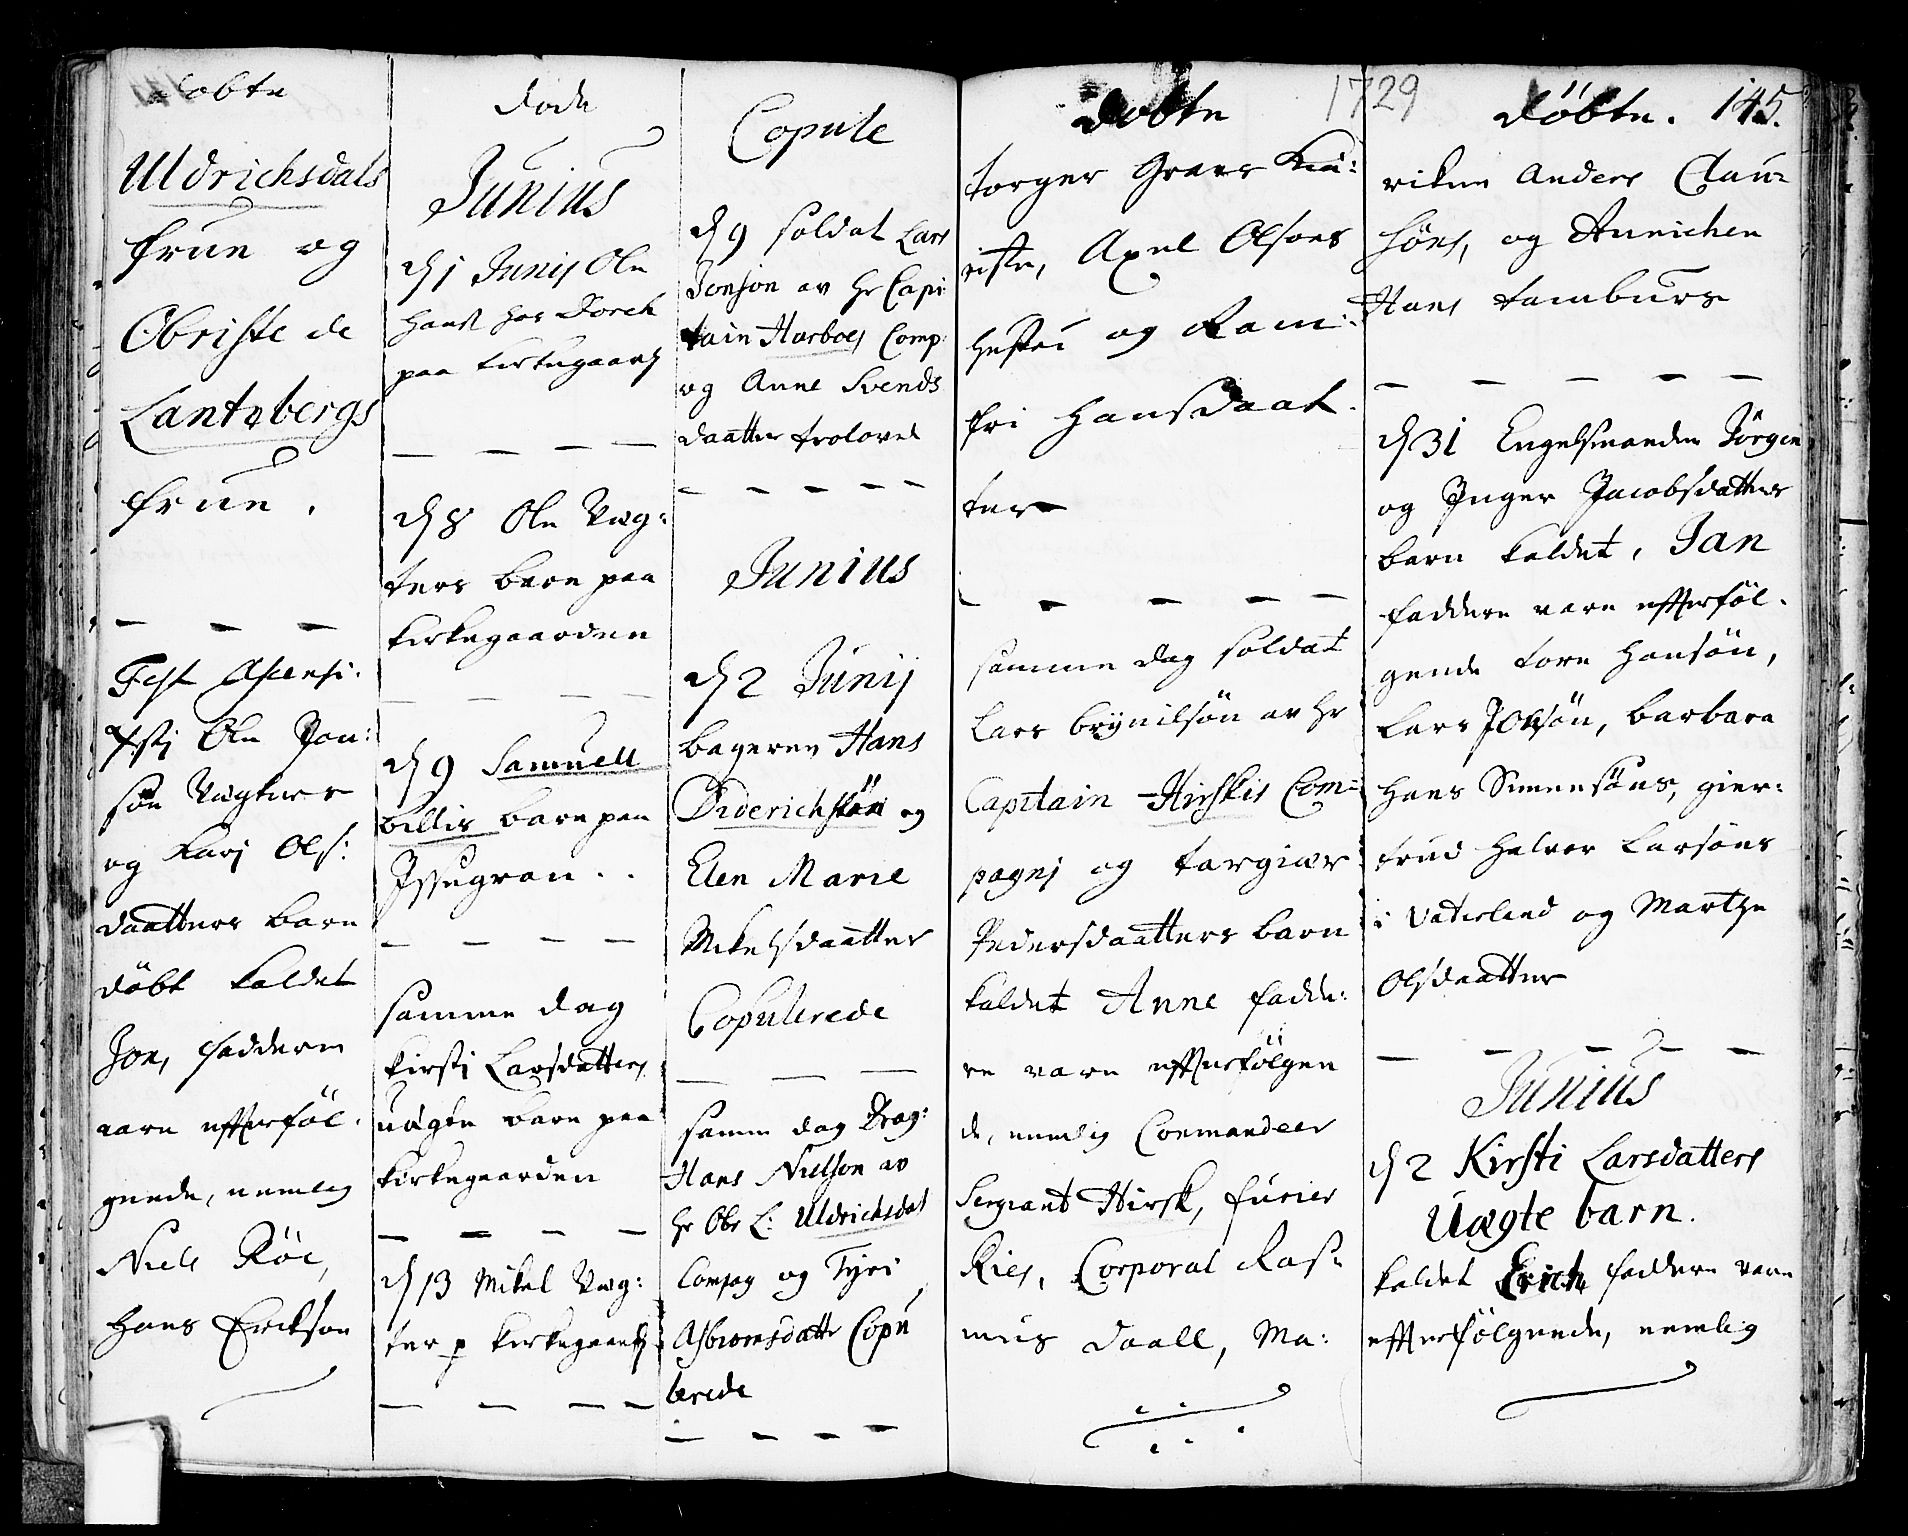 Døbte
Uldrichsdals
frue og
Obriste de
Lantzbergs
frue.
Fest Ascensi:
Xsti Ole Jon:
søn Vegters
og Kari Ols:
daatters barn
døbt kaldet
Jon, faddern
varn efterføl.
gende, nemlig
Niels Röe,
Hans Erickson
døde
Junius
d 1 Junij Ole
Hans hos Doreth
paa kirkegaard
d 8 Ole Væg:
ters barn paa
kirkegaarden
d 9 Samuell
billis barn paa
Jssegran..
samme dag
Kirsti Larsdatters
uægte barn paa
kirkegaarden
d 13 Mikel Væg:
ter p kirkegaard
Copule
d 9 soldat Lars
Jonson av hr Capi
tain Harboes Comp:
og Anne Svends
daatter trolovet
Junius
d 2 Junij
bageren Hans
Diderichsøn og
Elen Marie
Mikelsdaatter
Copulerede
samme dag Drag:
Hans Nielson av
hr Obr L: Uldrichsdal
Compag og Tyri
Asbiornsdatter Copu
lerede
1729
døbte
torger Graer Kna:
riste, Axel Olsons
hustru og Ram:
fri Hansdaat
ter
samme dag soldat
Lars brynilsøn av hr
Capitain Hirskis Com=
pagni og torgiær
Pedersdaatters barn
kaldet Anne fadde:
re varn efterfölgen
de, nemlig Commandeer
Sergiant Hirsk, furier
Ries, Corporal Ras=
mus Daall, Ma:
døbte. 145.
rikene Anders Clau=
søns, og Annichen
Hans tambúrs
d 31 Engelsmanden Jörgen
og Inger Jacobsdatters
barn kaldet, Jan
faddere varn efterföl.
gende torn Hansön,
Lars Jonsön, barbara
Hans Simensöns, gier:
trud Halvor Larsöns
i Vaterland og Marthe
Olsdaatter
Junius
d 2 Kirsti Larsdatters
Uægte barn.
kaldet Erich faddere varn
efterfölgende, nemlig